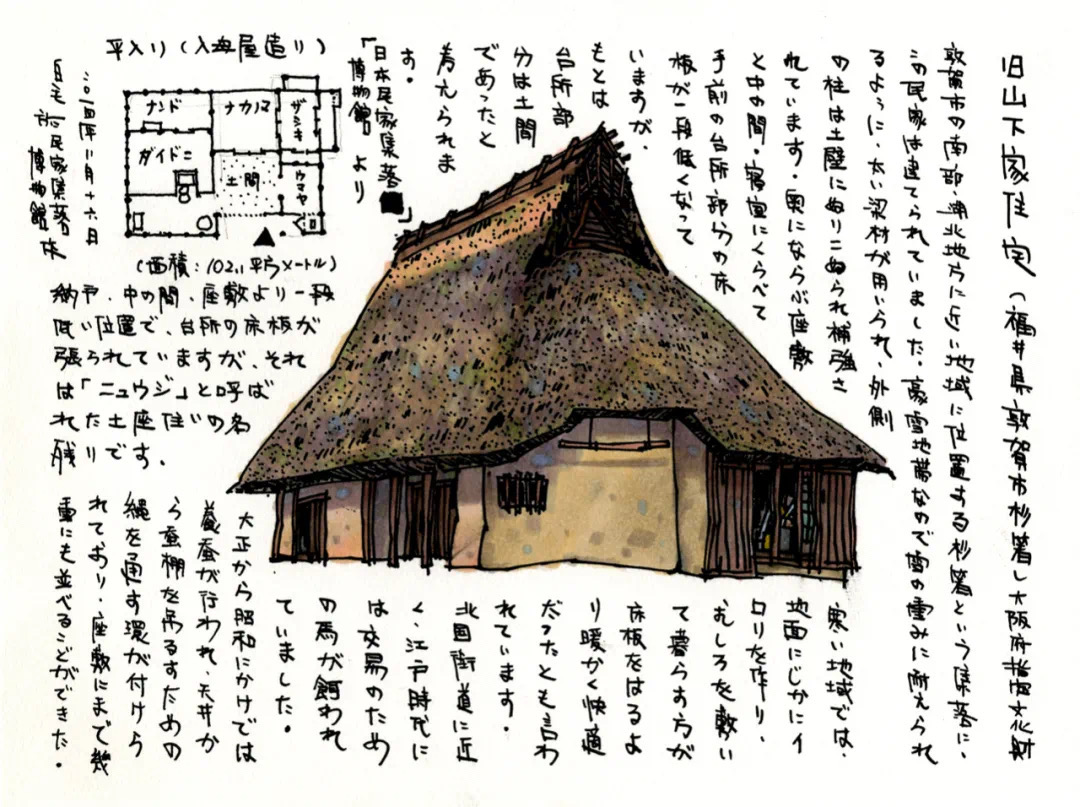 旧山下家住宅(福井県敦賀市杉箸)大阪府指定文化財
敦賀市の南部・湖北地方に近い地域に位置する杉箸という集落に、
この民家は建てられていました。豪雪地帯なので雪の重みに耐えられ
るように、太い梁材が用いられ、外側
の柱は土壁にぬりこめられ補強さ
れています。奥にならぶ座敷
と中の間・寝室にくらべて
手前の台所部分の床
板が一段低くなって
いますが、
もとは
台所部
分は土間
であったと
考えられま
す。
「日本民家集落
博物館」より
平入り(入母屋造り)
ナンド
ナカノマ
ザシキ
ダイドコ
土間
ウマヤ
(面積:102.11平方メートル)
二〇一四年二月十六日
日本民家集落
博物館
納戸、中の間、座敷より一段
低い位置で、台所の床板が
張られていますが、それ
は「ニュウジ」と呼ば
れた土座住いの名
残りです。
寒い地域では、
地面にじかにイ
ロリを作り、
むしろを敷い
て暮らす方が
床板をはるよ
り暖かく快適
だったとも言わ
れています。
北国街道に近
く、江戸時代に
は交易のため
の馬が飼われ
ていました。
大正から昭和にかけては
養蚕が行われ、天井か
ら蚕棚を吊るすための
縄を通す環が付けら
れており・座敷にまで幾
重にも並べることができた。